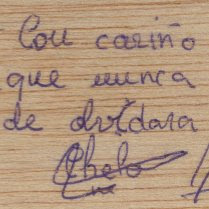 Con cariño
que nunca
de olvidara
Chelo